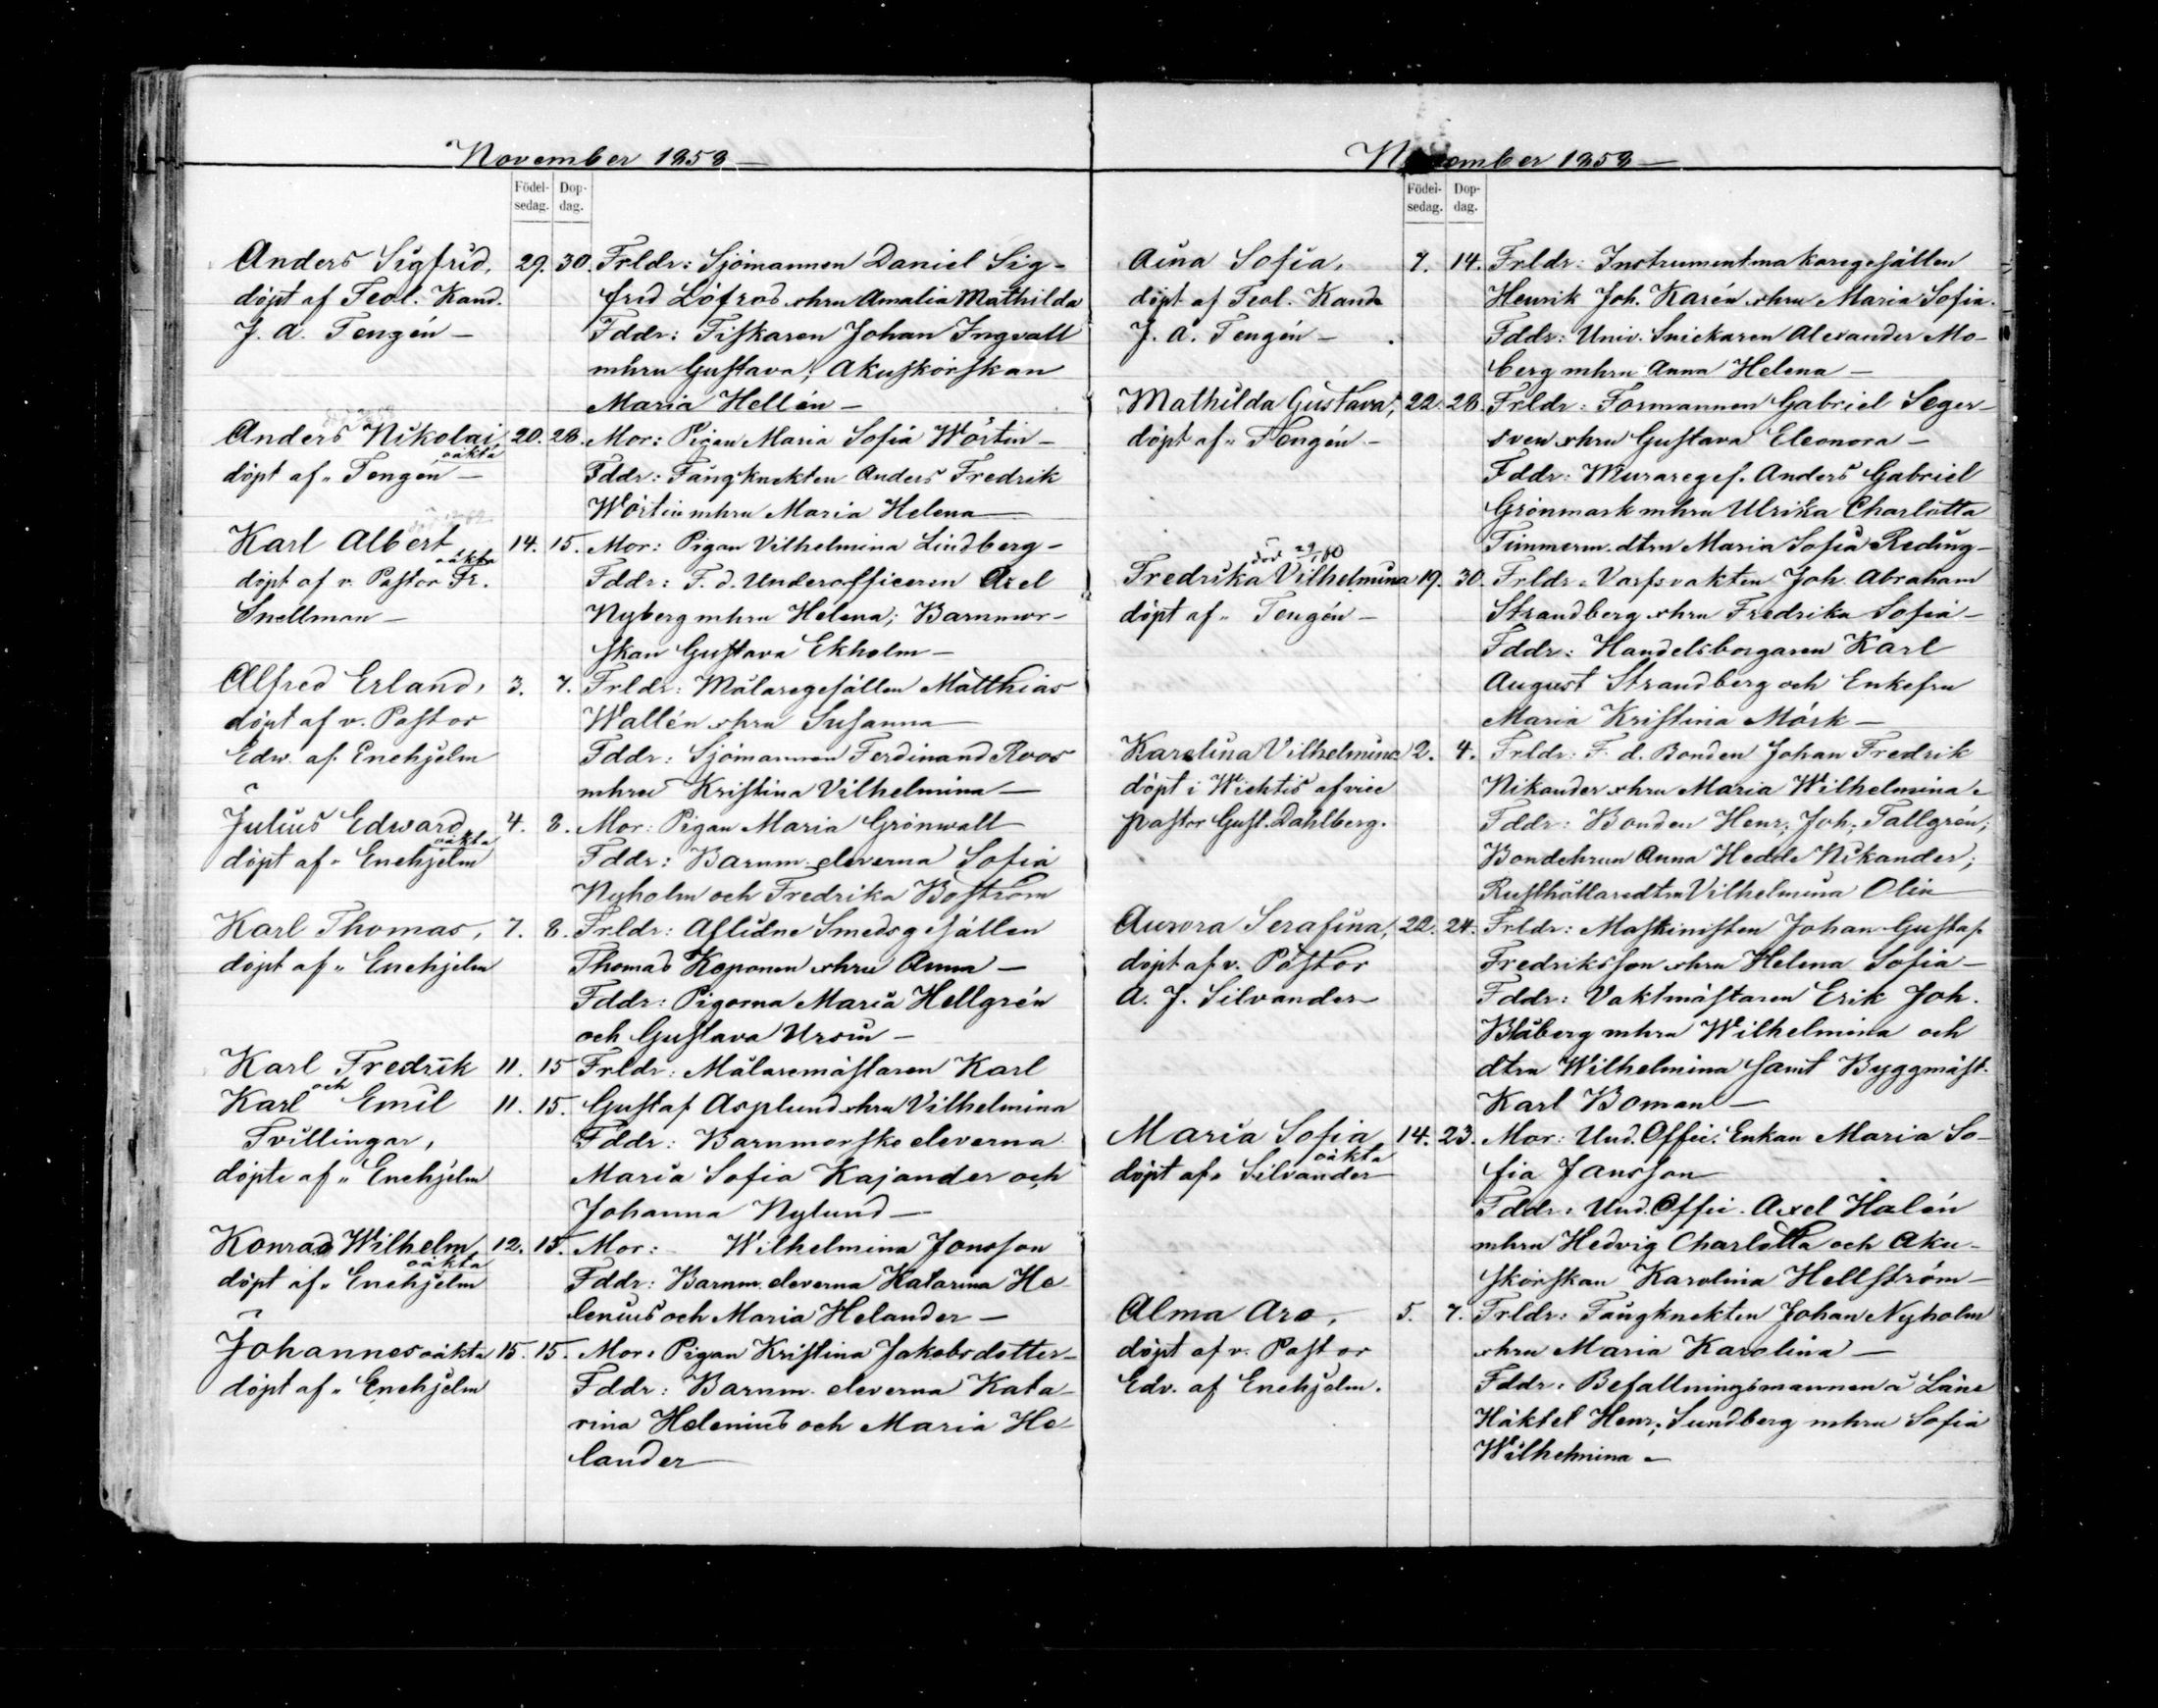 November 1858
Födel- Dop-
sedag. dag.
Anders Sigfrid, 29. 30. Frldr: Sjömannen Daniel Sig-
döpt af Teol. Kand. frid Löfros o hru Amalia Mathilda
J. A. Tengén — Fddr: Fiskaren Johan Ingvall
mhru Gustava; Akuskörskan
Maria Hellén —
Anders Nikolai, 20. 28. Mor: Pigan Maria Sofia Wörtin —
oäkta
döpt af „ Tengén — Fddr: Fångknekten Anders Fredrik
Wörtin mhru Maria Helena —
Karl Albert 14. 15. Mor: Pigan Vilhelmina Lindberg —
oäkta
döpt af v. Pastor Fr. Fddr: F. d. Underofficeren Axel
Snellman — Nyberg mhru Helena; Barnmor-
skan Gustava Ekholm —
Alfred Erland, 3. 7. Frldr: Målaregesällen Matthias
döpt af v. Pastor Wallén o hru Susanna —
Edw. af Enehjelm Fddr: Sjömannen Ferdinand Roos
mhru Kristina Vilhelmina —
Julius Edward 4. 8. Mor: Pigan Maria Grönwall
oäkta
döpt af „ Enehjelm Fddr: Barnm. eleverna Sofia
Nyholm och Fredrika Boström
Karl Thomas, 7. 8. Frldr: Aflidne Smedsgesällen
döpt af „ Enehjelm Thomas Koponen o hru Anna —
Fddr: Pigorna Maria Hellgrén
och Gustava Ursin —
Karl Fredrik 11. 15 Frldr: Målaremästaren Karl
och
Karl Emil 11. 15. Gustaf Asplund o hru Vilhelmina
Tvillingar, Fddr: Barnmorske eleverna
döpte af „ Enehjelm Maria Sofia Kajander och
Johanna Nylund —
Konrad Wilhelm, 12. 15. Mor: — Wilhelmina Jonsson
oäkta
döpt af „ Enehjelm Fddr: Barnm. eleverna Katarina He-
lenius och Maria Helander —
Johannes oäkta 15. 15. Mor: Pigan Kristina Jakobsdotter —
döpt af „ Enehjelm Fddr: Barnm. eleverna Kata-
rina Helenius och Maria He-
lander —
November 1858
Födel- Dop-
sedag. dag.
Aina Sofia, 7. 14. Frldr: Instrumentmakaregesällen
döpt af Teol. Kand. Henrik Joh. Karén o hru Maria Sofia.
J. A. Tengén — Fddr: Univ. Snickaren Alexander Mo-
berg mhru Anna Helena —
Mathilda Gustava, 22. 28. Frldr: Formannen Gabriel Seger-
döpt af „ Tengén — sven o hru Gustava Eleonora —
Fddr: Muraregef. Anders Gabriel
Grönmark mhru Ulrika Charlotta
Timmerm. dtrn Maria Sofia Reding —
död 29/1 60
Fredrika Vilhelmina 19. 30. Frldr: Varfsvakten Joh. Abraham
döpt af „ Tengén — Strandberg o hru Fredrika Sofia —
Fddr: Handelsborgaren Karl
August Strandberg och Enkefru
Maria Kristina Mörk —
Karolina Vilhelmina 2. 4. Frldr: F. d. Bonden Johan Fredrik
döpt i Wichtis af vice Nikander o hru Maria Wilhelmina.
pastor Gust. Dahlberg. Fddr: Bonden Henr. Joh. Tallgrén;
Bondehrun Anna Hedda Nikander;
Rusthållaredtrn Vilhelmina Olin
Aurora Serafina, 22. 24. Frldr: Maskinisten Johan Gustaf
döpt af v. Pastor Fredriksson o hru Helena Sofia —
A. J. Silvander Fddr: Vaktmästaren Erik Joh.
Blåberg mhru Wilhelmina och
dtrn Wilhelmina samt Byggmäst.
Karl Boman —
Maria Sofia 14. 23. Mor: Und. Offic. Enkan Maria So-
oäkta
döpt af „ Silvander fia Jansson
Fddr: Und. Offic. Axel Halén
mhru Hedvig Charlotta och Aku-
skörskan Karolina Hellström —
Alma Aro, 5. 7. Frldr: Fångknekten Johan Nyholm
döpt af v. Pastor o hru Maria Karolina —
Edv. af Enehjelm. Fddr: Befallningsmannen å Läns
Häktet Henr. Sundberg mhru Sofia
Wilhelmina —